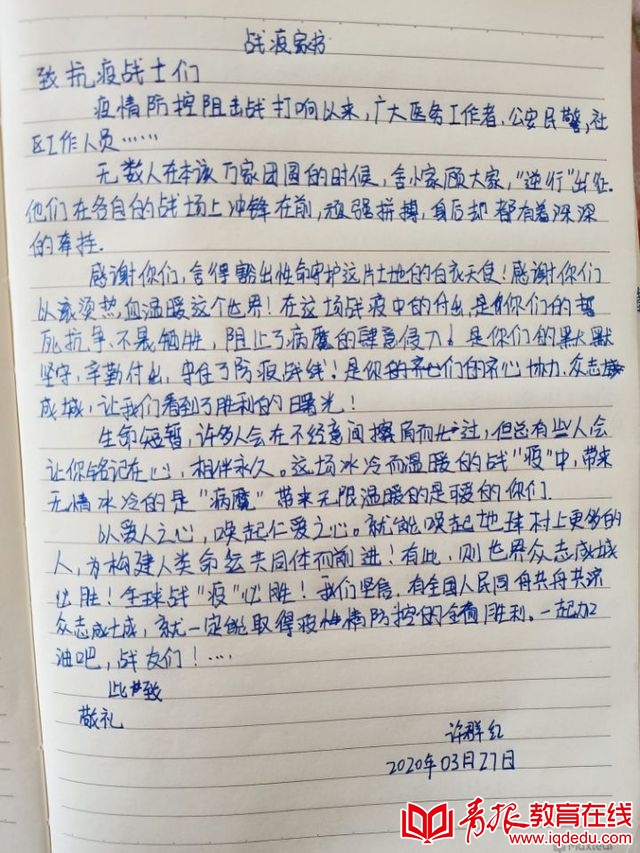 战疫家书
致抗疫战士们
疫情防控阻击战打响以来，广大医务工作者，公安民警，社
区工作人员……
无数人在本该万家团圆的时候，舍小家顾大家，“逆行”出征.
他们在各自的战场上冲锋在前，顽强拼搏，身后却都有着深深
的牵挂.
感谢你们，舍得豁出性命守护这片土地的白衣天使！感谢你们
以滚烫热血温暖这个世界！在这场战疫中的付出，是你们的
死抗争、不畏牺牲，阻止了病魔的肆意侵入！是你们的默默
坚守，辛勤付出，守住了防疫战线！是你们的齐心协力、众志
成城，让我们看到了胜利的曙光！
生命短暂，许多人会在不经意间擦肩而过，但总有些人会
让你铭记在心，相伴永久。这场冰冷而温暖的战“疫”中，带来
无情冰冷的是“病魔”带来无限温暖的是可爱的你们.
以爱人之心，唤起仁爱之心。就能唤起地球村上更多的
人，为构建人类命运共同体而前进！有此，则世界众志成城
必胜！全球战“疫”必胜！我们坚信，有全国人民同舟共济
众志成城，就一定能取得疫情防控的全面胜利。一起加
油吧，战友们！….
此致
敬礼
许群红
2020年03月27日
青报教育在线
www.iqdedu.com